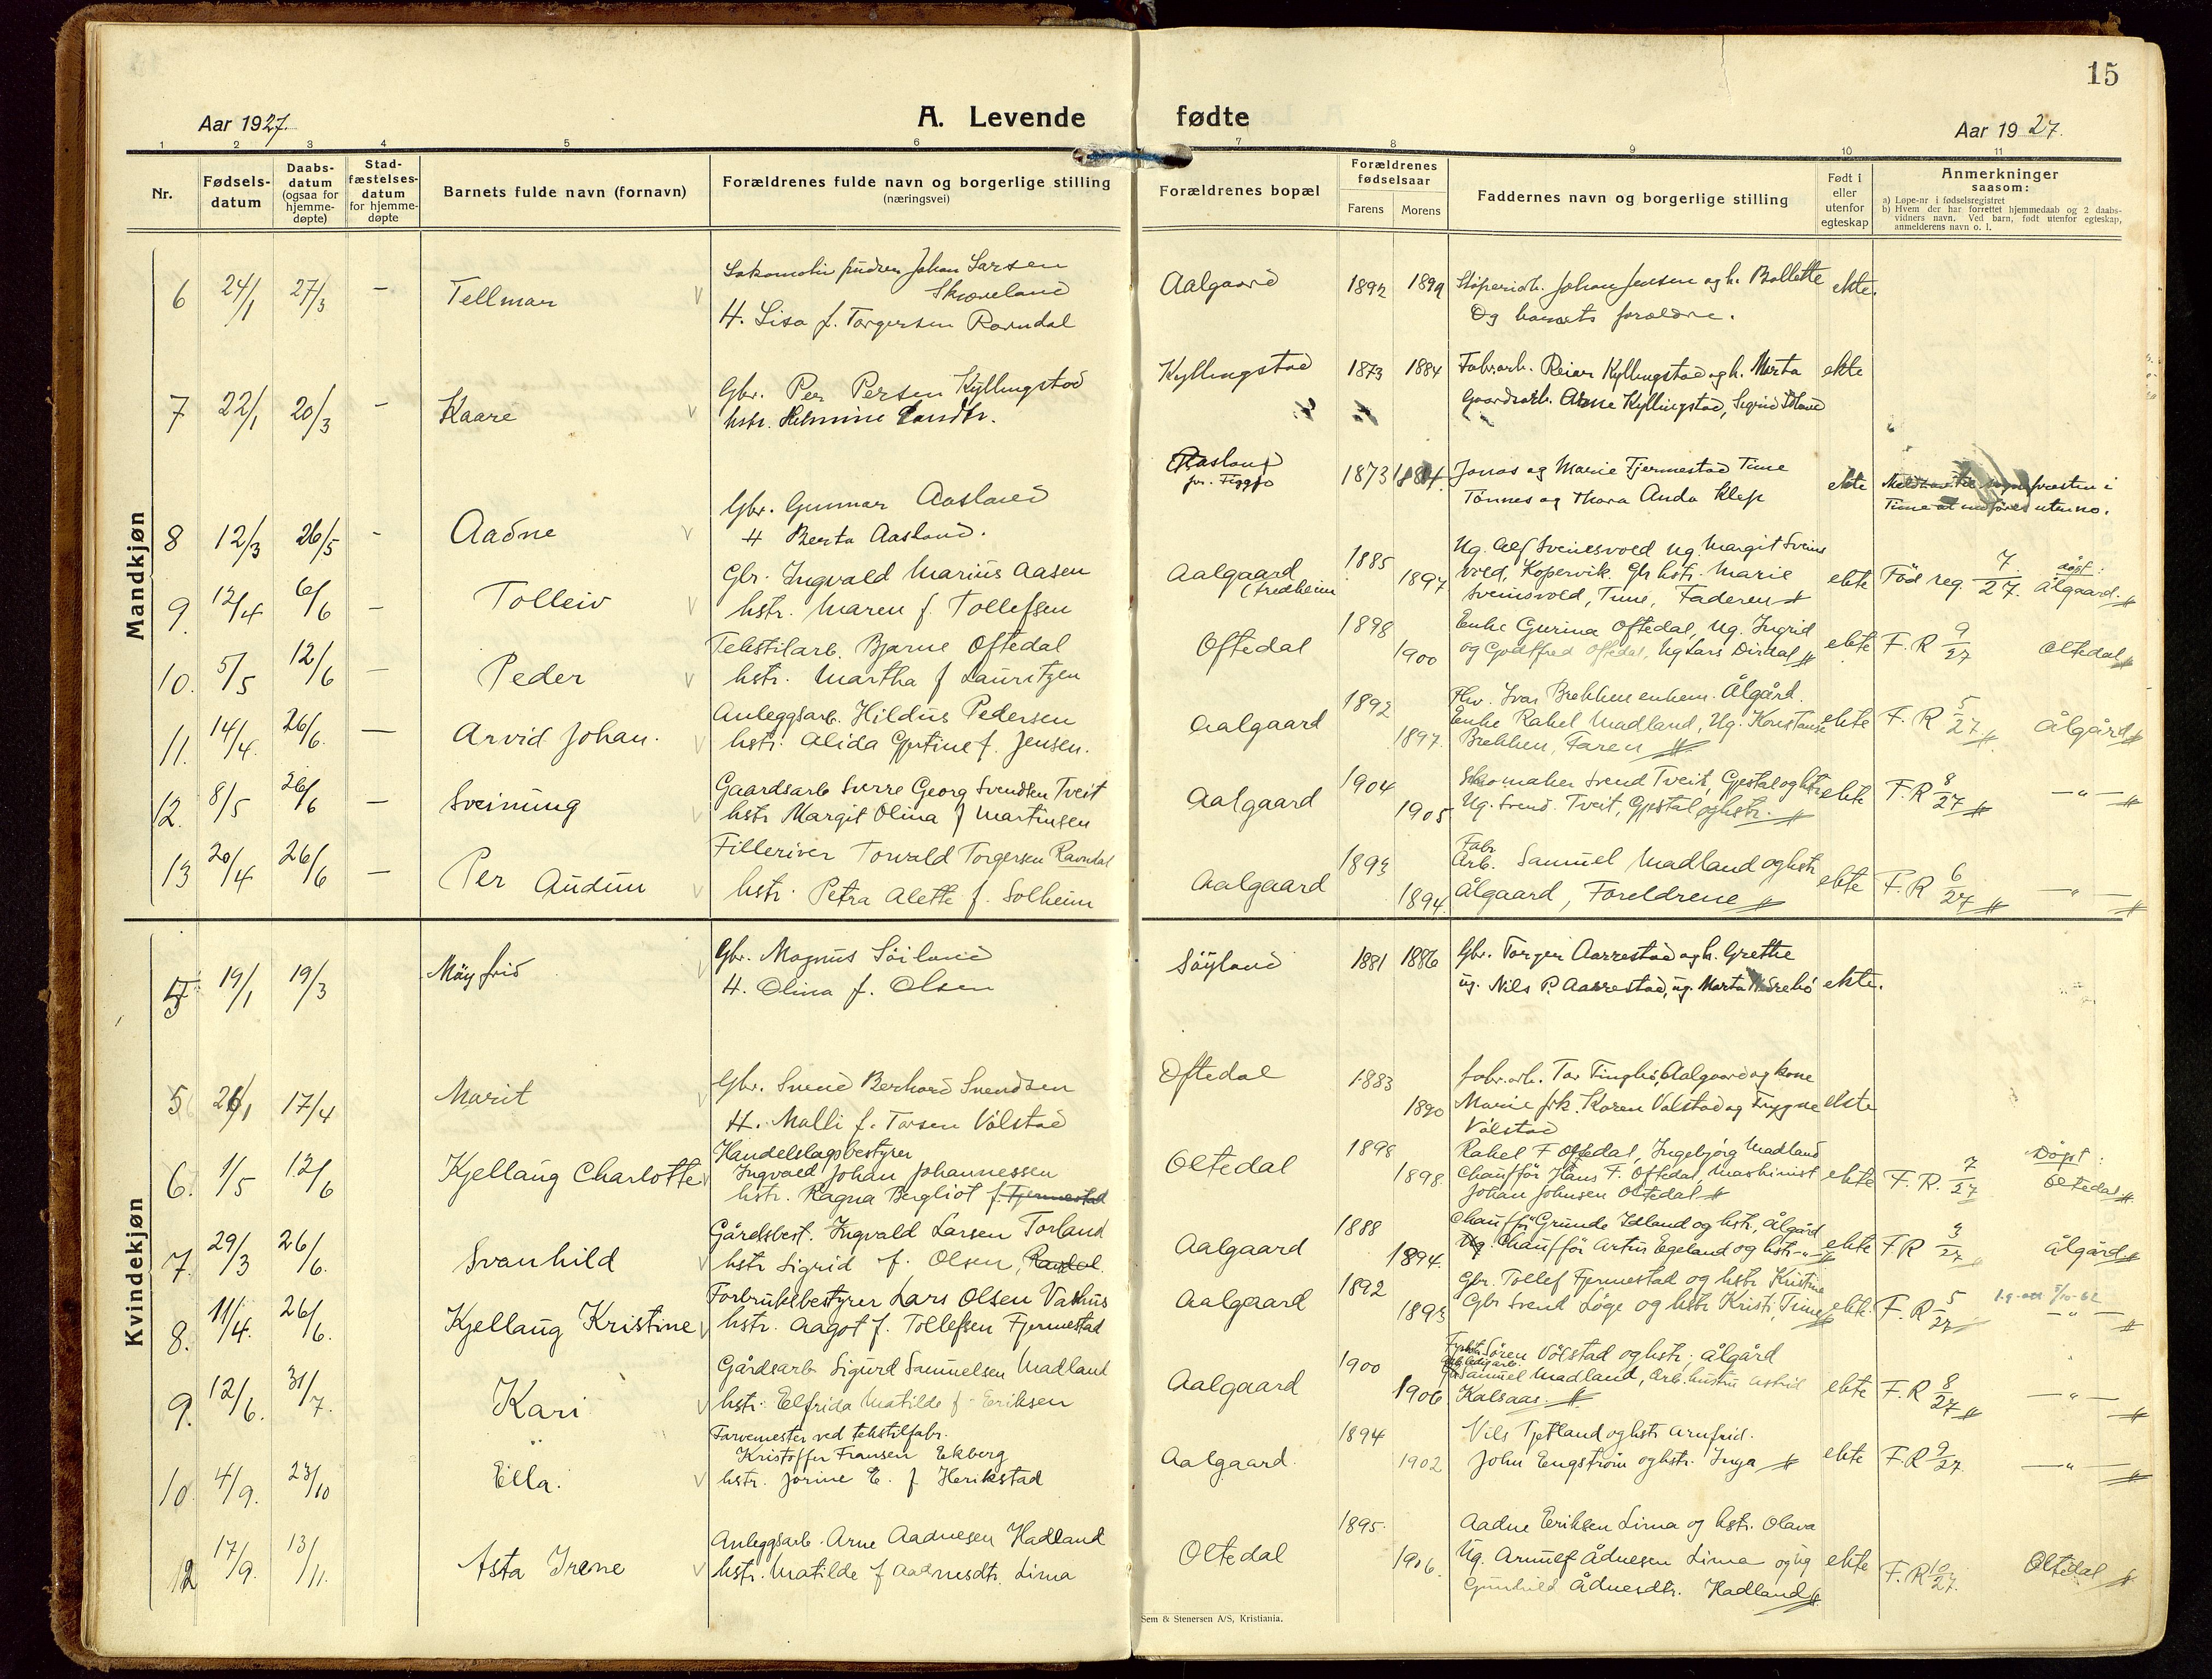 15
Aar 1927.
A. Levende
fødte
Aar 1927.
1 2 3 4 5 6 7 8 9 10 11
Nr.
Fødsels-
datum
Daabs-
datum
(ogsaa for
hjemme-
døpte)
Stad-
fæstelses-
datum
for hjemme-
døpte
Barnets fulde navn (fornavn)
Forældrenes fulde navn og borgerlige stilling
(næringsvei)
Forældrenes bopæl
Forældrenes
fødselsaar
Farens Morens
Faddernes navn og borgerlige stilling
Født i
eller
utenfor
egteskap
Anmerkninger
saasom:
a) Løpe-nr i fødselsregistret
b) Hvem der har forrettet hjemmedaab og 2 daabs-
vidners navn. Ved barn, født utenfor egteskap,
anmelderens navn o. l.
Mandkjøn
6 24/1 27/3 – Tellmar
Johan Larsen
Skjæveland
H. Lisa f. Torgersen Ravndal
Aalgaard 1892 1899
Johan Jensen og h. Bollette
Og barnets forældre.
ekte.
7 22/1 20/3 – Kaare
Gbr. Per Persen Kyllingstad
hstr.
Kyllingstad 1873 1884
Fabr.arb. Reier Kyllingstad og h. Marta
Gaardsarb. Arne Kyllingstad, Sigrid
ekte
8 12/3 26/5 – Aadne
Gbr. Gunnar Aasland
H Berta Aasland.
Aasland
pr. Figgjo
1873 1884.
Jonas og Marie Fjermestad Time
Tönnes og Thora Anda Klep
ekte
Time at indföres uten no.
9. 12/4 6/6 – Tolleiv
Gbr. Ingvald Marius Aasen
hstr. Maren f. Tollefsen
Aalgaard
(Fredheim
1885 1897
Ug. Alf Sveinsvold ug. Margit Sveins
vold, Kopervik. Gbr hstr. Marie
Sveinsvold, Time, Faderen
ekte
Föd reg. 7/27. döpt: Ålgaard.
10. 5/5 12/6 – Peder
Tekstilarb. Bjarne Oftedal
hstr. Martha f Lauritzen
Oftedal 1898 1900
Enke Gurina Oftedal, Ug. Ingrid
og Godtfred Oftedal, Ug Lars Dirdal
ekte F.R 9/27 Oltedal
11. 14/4. 26/6. — Arvid Johan.
Anleggsarb. Hildus Pedersen
hstr. Alida Gjertine f. Jensen.
Aalgaard 1892 1897.
Ivar Brekken enkem. Ålgård.
Enke Rakel Madland, Ug. Konstanse
Brekken, Faren
ekte F.R 5/27 Ålgård
12. 8/5 26/6 — Sveinung
Gaardsarb Sverre Georg Svendsen Tveit
hstr Margit Olina f Martinsen
Aalgaard 1904 1905
Skomaker Svend Tveit, Gjestal og hstr
Ug. Svend Tveit, Gjestal og hstr.
ekte F.R 8/27 — " —
13 20/4 26/6 — Per Audun
Filleriver Torvald Torgersen Ravndal
hstr. Petra Alette f. Solheim
Aalgaard 1893 1894.
Fabr
Arb. Samuel Madland og hstr
Ålgaard, Foreldrene
ekte F.R 6/27 — " —
Kvindekjøn
19/1 19/3 Möyfrid
Gbr. Magnus Söiland
H. Olina f. Olsen
Söyland 1881 1886
Gbr. Torger Aarrestad og h. Grethe
ug. Nils P. Aarrestad, ug. Marta
ekte.
5 26/1 17/4 Marit
Gbr. Svend Berhard Svendsen
H. Malli f. Tarsen Välstad
Oftedal 1883 1890
fabr.arb. Tor Tinghö, Aalgaard og kone
Marie frk. Karen Valstad og Trygve
Völstad
ekte
6. 1/5 12/6 Kjellaug Charlotte
Handelslagsbestyrer
Ingvald Johan Johannessen
hstr. Ragna Bergliot f. Fjermestad
Oltedal 1898 1898.
Rakel F Oftedal, Ingebjørg Madland
Chaufför Hans F. Oftedal, Maskinist
Johan Johnsen Oltedal
ekte F.R. 7/27 Döpt: Oltedal
7. 29/3 26/6. Svanhild
Gårdsbest. Ingvald Larsen Torland
hstr Sigrid f. Olsen,
Aalgaard 1888 1894.
Chauffö Grunde Idland og hstr, Ålgård
Chaufför Artur Egeland og hstr. - " -
ekte F.R 3/27 Ålgård
8. 11/4. 26/6. Kjellaug Kristine
Forbruksbestyrer Lars Olsen Vashus
hstr. Aagot f. Tollefsen Fjermestad
Aalgaard 1892 1893
Gbr. Tollef Fjermestad og hstr Kristine
Gbr Svend Löge og hstr Kristi, Time
ekte F.R 5/27 — " —
9. 12/6. 31/7. Kari
Gårdsarb Sigurd Samuelsen Madland
hstr. Elfrida Matilde f. Eriksen
Aalgaard 1900 1906
Sören Völstad og hstr. Ålgård
Samuel Madland, Arb.hustru Astrid
Kalsaas.
ekte F.R 8/27 — " —
10 4/9. 23/10 Ella.
Farvemester ved tekstilfabr.
Kristoffer Fransen Ekberg
hstr. Jorine E. f Herikstad
Aalgaard. 1894 1902
Nils Tjetland og hstr Arnfrid.
John Engström og hstr. Inga
ekte F.R 9/27. — " —
12 17/9. 13/11. Asta Irene
Anleggsarb. Arne Aadnesen Hadland
hstr. Matilde f Aadnesdtr. Lima
Oltedal 1895. 1906.
Aadne Eriksen Lima og hstr. Olava
Ug. Arnulf Ådnesen Lima og ug
Gunhild Ådnesdtr. Hadland
ekte F.R 10/27. Oltedal
Sem & Stenersen A/S, Kristiania.